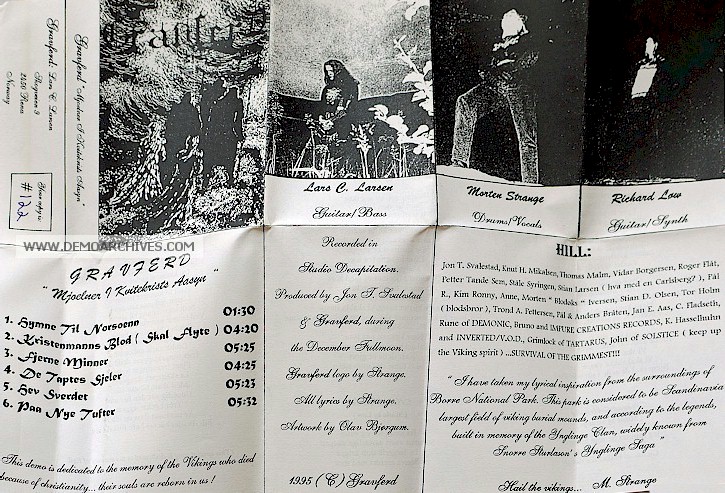 Gravferd "Mjoelner I Kvitekrists Aasyn"
Gravferd: Lars C. Larsen
2450 Rena
Norway
Your copy is
# 22
Gravferd
Lars C. Larsen
Guitar/Bass
Morten Strange
Drums/Vocals
Richard Low
Guitar/Synth
WWW.DEMOARCHIVES.COM
GRAVFERD
" Mjoelner I Kvitekrists Aasyn "
1. Hymne Til Norsoenn 01:30
2. Kristenmanns Blod ( Skal Flyte ) 04:20
3. Fjerne Minner 05:25
4. De Taptes Sjeler 04:25
5. Hev Sverdet 05:23
6. Paa Nye Tufter 05:32
This demo is dedicated to the memory of the Vikings who died
because of christianity... their souls are reborn in us !
Recorded in
Studio Decapitation.
Produced by Jon T. Svalestad
& Gravferd, during
the December Fullmoon.
Gravferd logo by Strange.
All lyrics by Strange.
Artwork by Olav Bjergum.
1995 (C) Gravferd
HILL:
Jon T. Svalestad, Knut H. Mikalsen, Thomas Malm, Vidar Borgersen, Roger Flåt,
Petter Tande Sem, Ståle Syringen, Stian Larsen ( hva med en Carlsberg? ), Pål
R., Kim Ronny, Anne, Morten " Blodoks " Iversen, Stian D. Olsen, Tor Holm
( blodsbror ), Trond A. Pettersen, Pål & Anders Bråten, Jan E. Aas, C. Fladseth,
Rune of DEMONIC, Bruno and IMPURE CREATIONS RECORDS, K. Hasselhuhn
and INVERTED/V.O.D., Grimlock of TARTARUS, John of SOLSTICE ( keep up
the Viking spirit ) ...SURVIVAL OF THE GRIMMEST!!!
" I have taken my lyrical inspiration from the surroundings of
Borre National Park. This park is considered to be Scandinavia
largest field of viking burial mounds, and according to the legends,
built in memory of the Ynglinge Clan, widely known from
Snorre Sturlason's Ynglinge Saga "
Hail the vikings... M. Strange